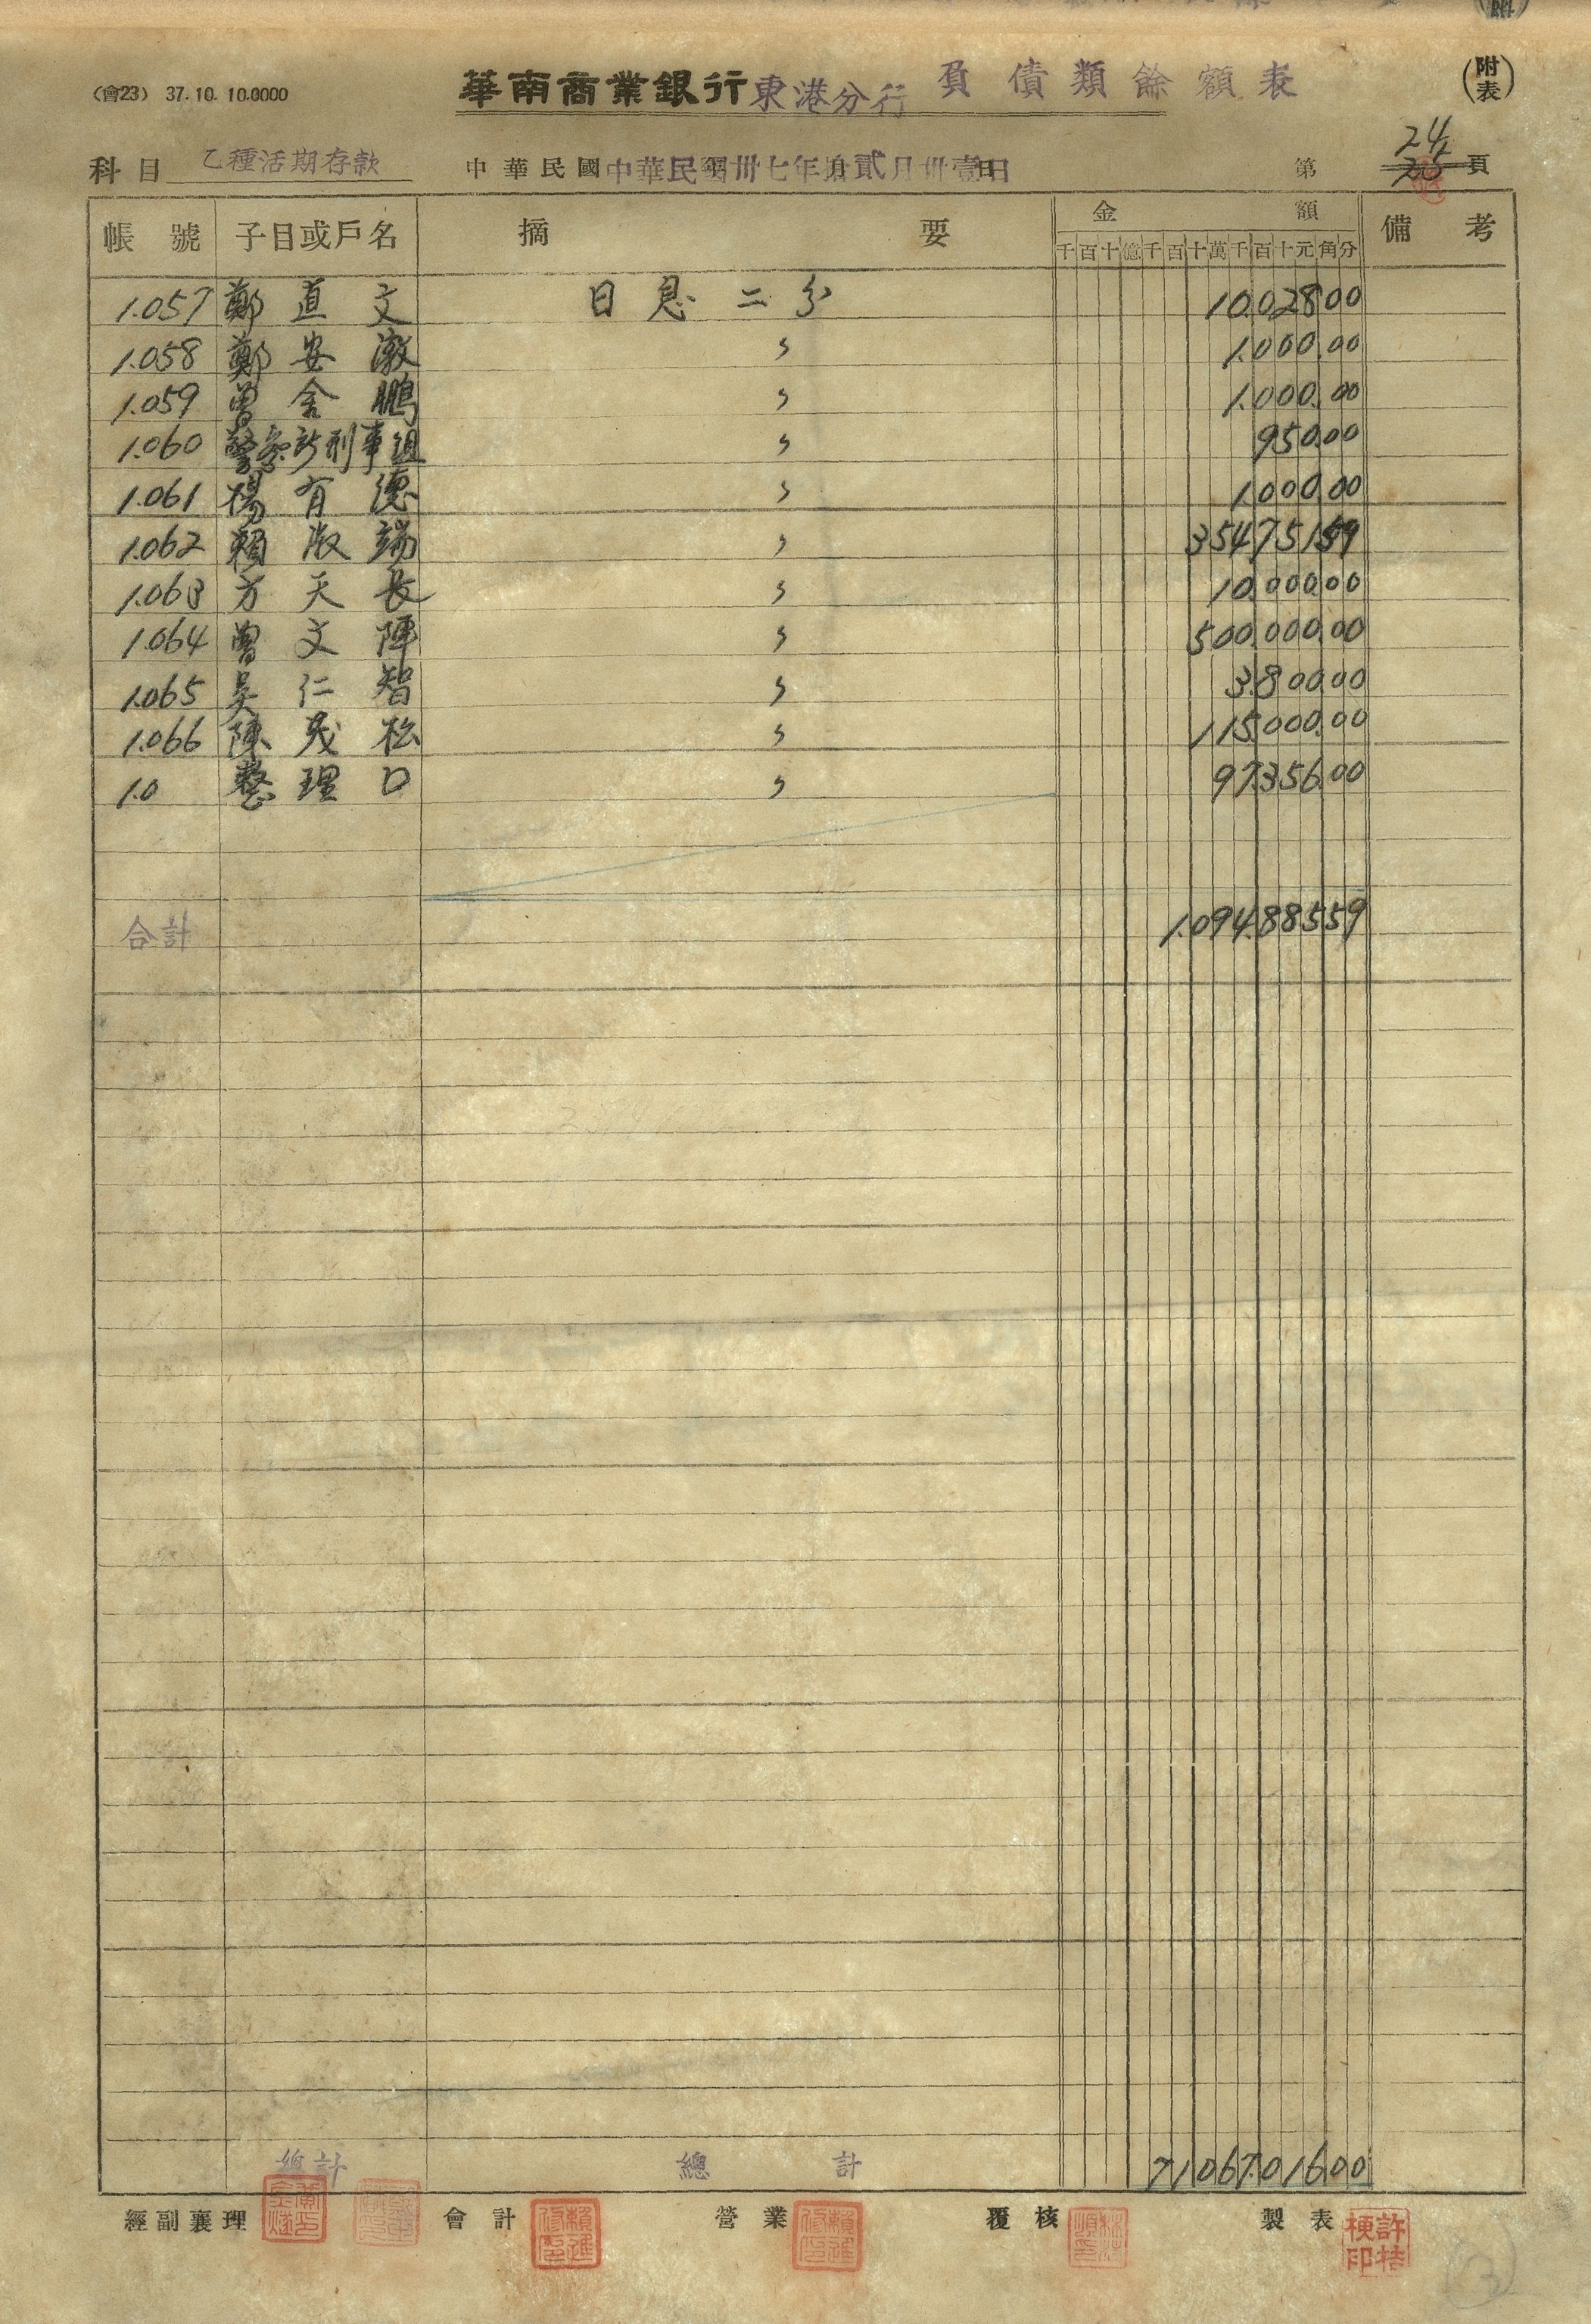 (會23) 37.10. 10.0000
華南商業銀行東港分行 負債類餘額表
(附表)
科目 乙種活期存款 中華民國 中華民國卅七年拾貳月卅壹日 第 24 頁
帳號 子目或戶名 摘要 金額 備考
千百十億千百十萬千百十元角分
1.057 鄭直文 日息二分 10.028.00
1.058 鄭安 〃 1.000.00
1.059 曾金鵬 〃 1.000.00
1.060 警察所刑事組 〃 950.00
1.061 楊有德 〃 1.000.00
1.062 賴淑端 〃 354.751.59
1.063 方天長 〃 10.000.00
1.064 曾文陣 〃 500.000.00
1.065 吳仁智 〃 3.800.00
1.066 陳茂松 〃 115.000.00
1.0 整理口 〃 97.356.00
合計 1.094.885.59
總計 總計 71.067.016.00
經副襄理 會計 營業 覆核 製表
許桔梗印